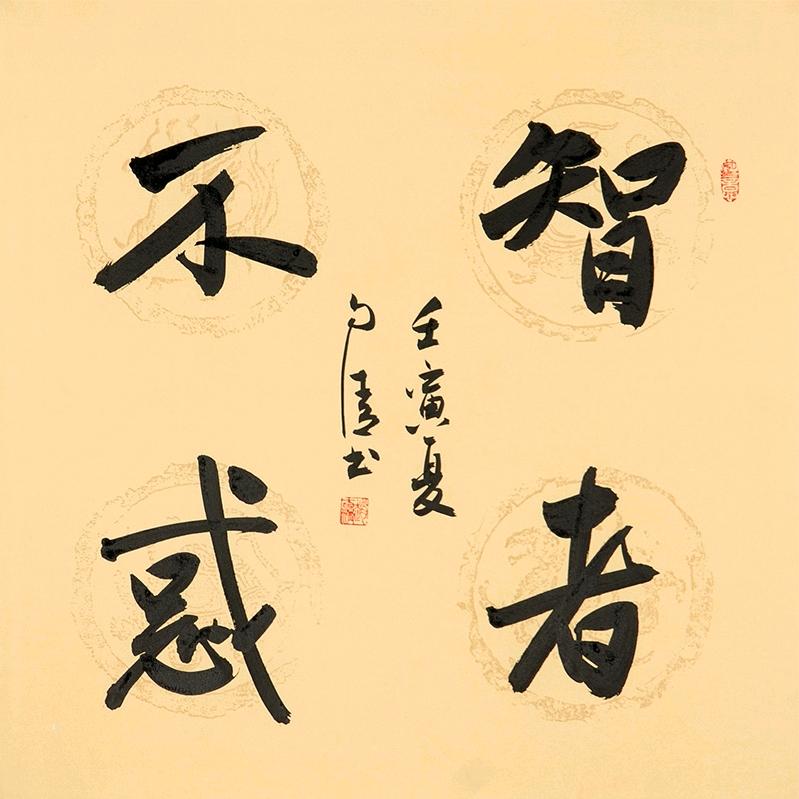 智者
不惑
壬寅夏
清书